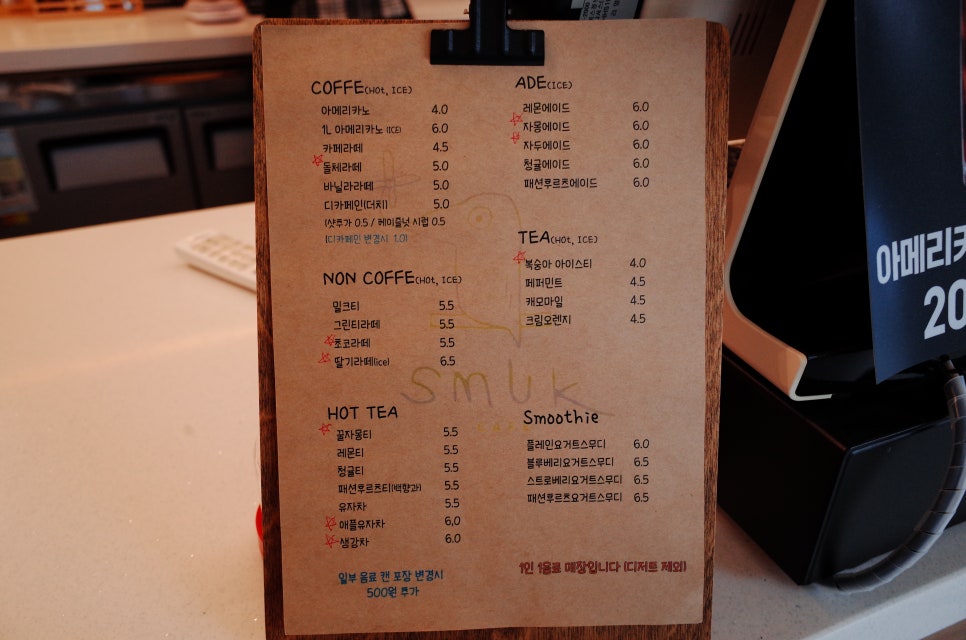 COFFE(HOt, ICE)
아메리카노 4.0
1L 아메리카노 (ICE) 6.0
카페라떼 4.5
돌체라떼 5.0
바닐라라떼 5.0
디카페인(더치) 5.0
(샷추가 0.5 / 헤이즐넛 시럽 0.5
(디카페인 변경시 1.0)
NON COFFE(HOt, ICE)
밀크티 5.5
그린티라떼 5.5
초코라떼 5.5
딸기라떼(ice) 6.5
HOT TEA
꿀자몽티 5.5
레몬티 5.5
청귤티 5.5
패션후르츠티(백향과) 5.5
유자차 5.5
애플유자차 6.0
생강차 6.0
일부 음료 캔 포장 변경시
500원 추가
ADE(ICE)
레몬에이드 6.0
자몽에이드 6.0
자두에이드 6.0
청귤에이드 6.0
패션후르츠에이드 6.0
TEA(HOt, ICE)
복숭아 아이스티 4.0
페퍼민트 4.5
캐모마일 4.5
크림오렌지 4.5
smuk
Smoothie
플레인요거트스무디 6.0
블루베리요거트스무디 6.5
스트로베리요거트스무디 6.5
패션후르츠요거트스무디 6.5
1인 1음료 매장입니다 (디저트 제외)
아메리카
20